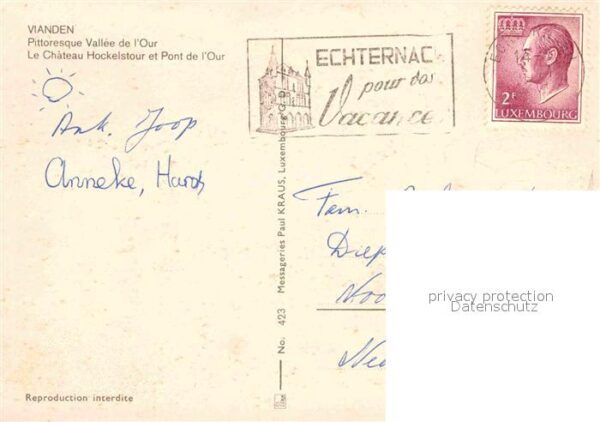 VIANDEN
Pittoresque Vallée de l'Our
Le Château Hockelstour et Pont de l'Our
ECHTERNAC
pour vos
Vacance
2F
LUXEMBOURG
Ank. Joop
Anneke,
Fam.
Diep
Noo
Ne
privacy protection
Datenschutz
No. 423 Messageries Paul KRAUS, Luxembourg-G.D.
Reproduction interdite